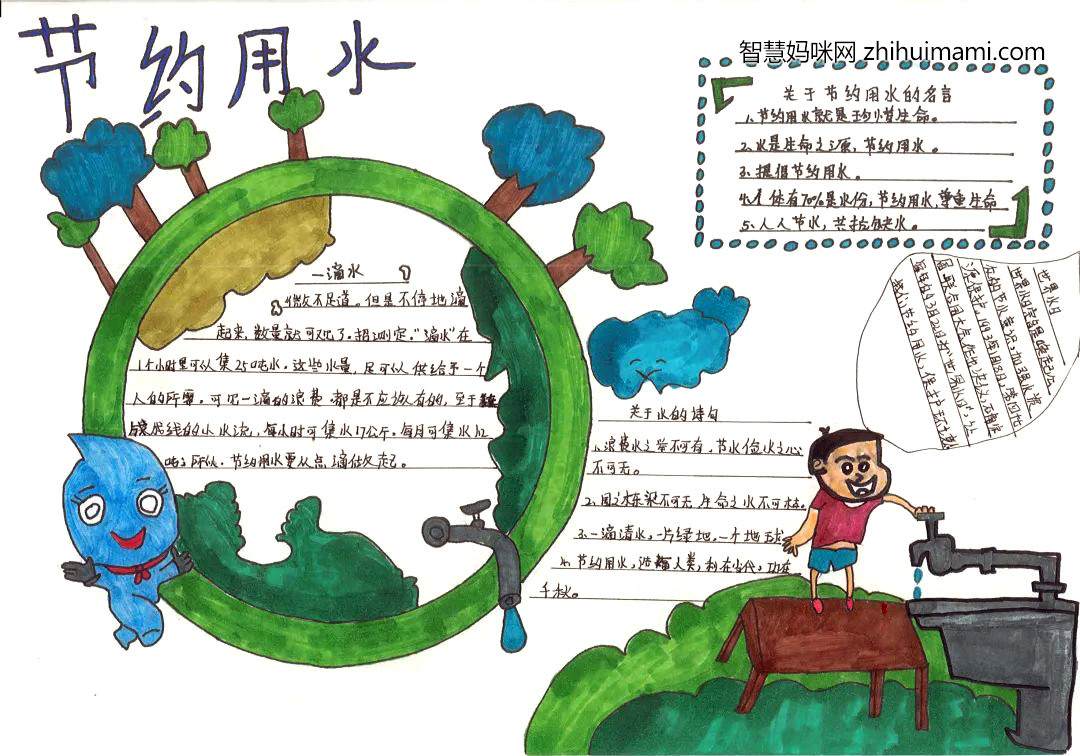 节约用水
智慧妈咪网 zhihuimami.com
关于节约用水的名言
1.节约用水就是珍惜生命。
2.水是生命之源，节约用水。
3.提倡节约用水。
4.人体有70%是水份，节约用水，尊重生命
5.人人节水，共抗缺水。
一滴水
微不足道。但是不停地滴
起来，数量就可观了。据测定，“滴水”在
1个小时里可以集250吨水，这些水量，足可以供给予一个
人的所需，可见一滴的浪费都是不应该有的，至于
线的小水流，每小时可集水17公斤，每月可集水12
吨；所以，节约用水要从点滴做起。
关于水的诗句
1.浪费水之举不可有，节水俭水之心
不可无。
2.国之栋梁不可无，生命之水不可枯。
3.一滴清水，一片绿地，一个地球
4.节约用水，造福人类，利在当代，功在
千秋。
世界水日
世界水日宗旨是唤起公众
的节水意识，加强水资
源保护。